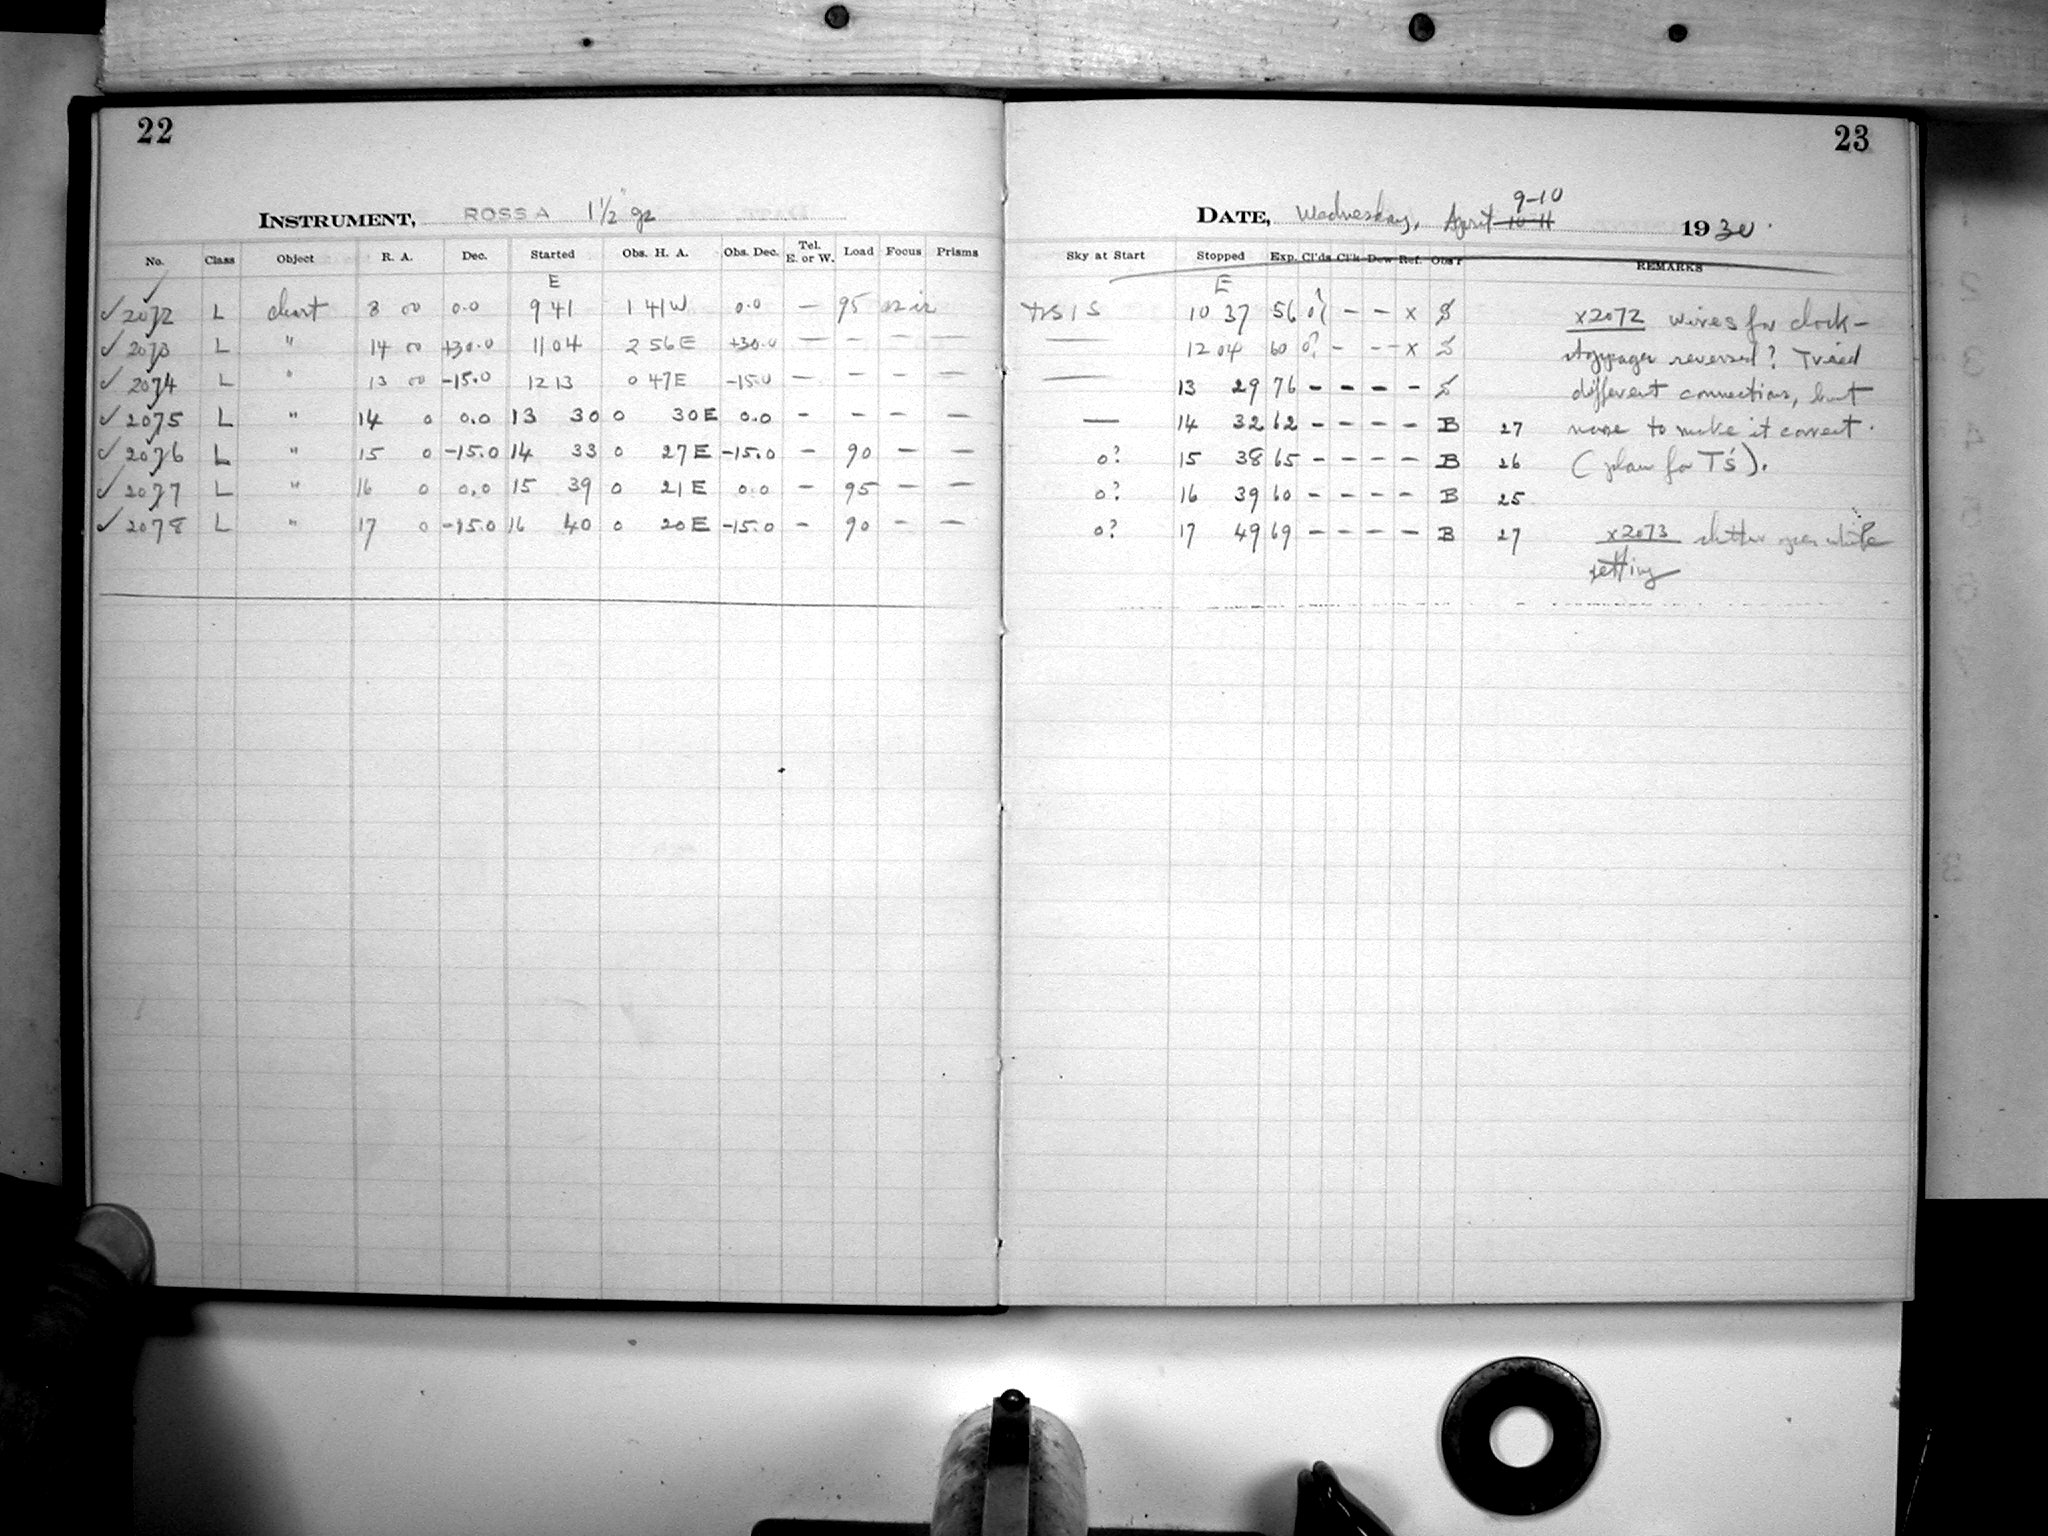 22
INSTRUMENT, ROSS A 1½"
No. Class Object R. A. Dec. Started Obs. H. A. Obs. Dec. Tel. E. or W. Load Focus Prisms
E
✓ 2072 L chart 8 00 0.0 9 41 1 41 W 0.0 — 95
✓ 2073 L " 14 00 +30.0 11 04 2 56 E +30.0 — – — —
✓ 2074 L " 13 00 -15.0 12 13 0 47 E -15.0 — — — —
✓ 2075 L " 14 0 0.0 13 30 0 30 E 0.0 - - - —
✓ 2076 L " 15 0 -15.0 14 33 0 27 E -15.0 - 90 — —
✓ 2077 L " 16 0 0.0 15 39 0 21 E 0.0 - 95 — —
✓ 2078 L " 17 0 -15.0 16 40 0 20 E -15.0 - 90 — —
23
9-10
DATE, Wednesday, April 10-11 1930.
Sky at Start Stopped Exp. Cl'ds Cl'k Dew Ref. Obs'r REMARKS
E
10 37 56 0? – – x S x2072 wires for clock-
— 12 04 60 0? - -- x S stopper reversed? Tried
— 13 29 76 - - - - S different connections, but
— 14 32 62 - - - - B 27 none to make it correct.
0? 15 38 65 - - - - B 26 (plan for T's).
0? 16 39 60 - - - - B 25
0? 17 49 69 - - - - B 27 x2073 shutter open while
setting